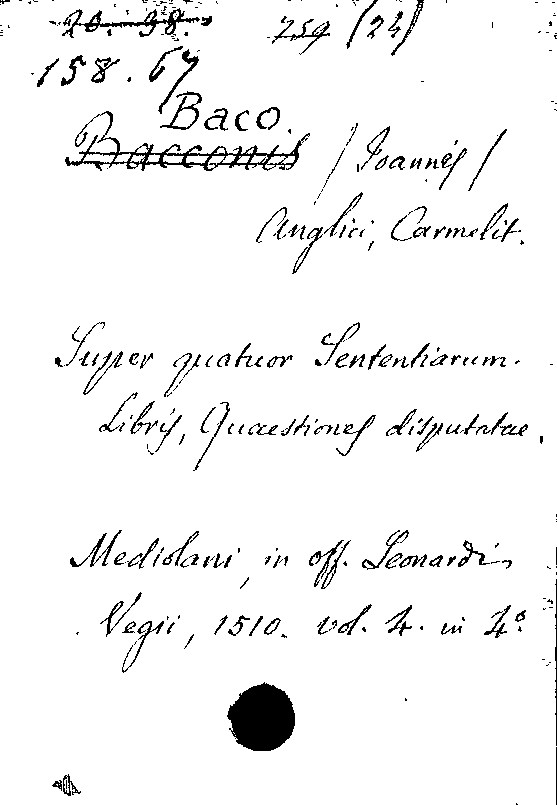 20. 38. 759 (24)
158. 67
Baco.
Bacconis / Joannes /
Anglici, Carmelit.
Super quatuor Sententiarum.
Libris, Quaestiones disputatae.
Mediolani, in off. Leonardi
Vegii, 1510. vol. 4. in 4º